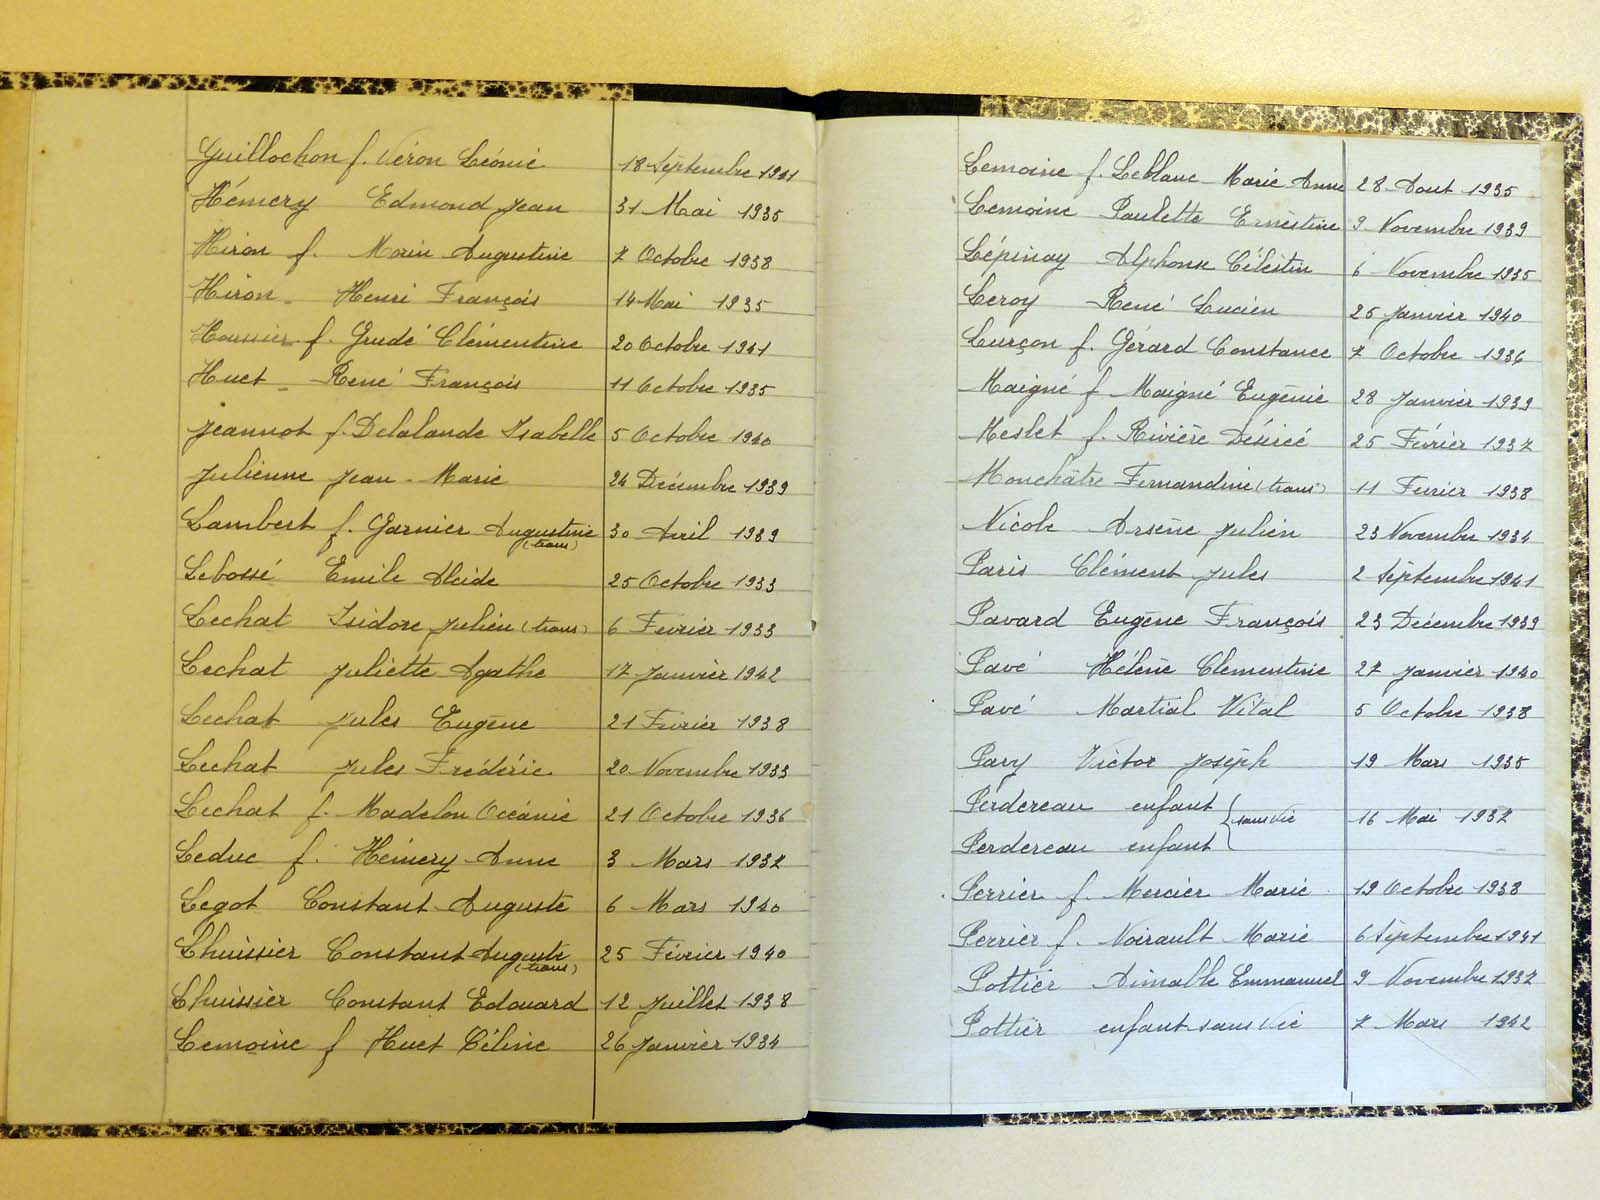 Guillochon f. Véron Léonie 18 Septembre 1941
Hémery Edmond Jean 31 Mai 1935
Hiron f. Morin Augustine 7 Octobre 1938
Hiron - Henri François 14 Mai 1935
Houssier f. Grudé Clémentine 20 Octobre 1941
Huet - René François 11 Octobre 1935
Jeannot f. Delalande Isabelle 5 Octobre 1940
Julienne Jean-Marie 24 Décembre 1939
Lambert f. Garnier Augustine 30 Avril 1939
(trans)
Lebossé Emile Alcide 25 Octobre 1933
Lechat Isidore Julien (trans) 6 Février 1933
Lechat Juliette Agathe 17 Janvier 1942
Lechat Jules Eugène 21 Février 1938
Lechat Jules Frédéric 20 Novembre 1933
Lechat f. Madelon Océanie 21 Octobre 1936
Leduc f. Hémery Anne 3 Mars 1937
Legot Constant Auguste 6 Mars 1940
Lhuissier Constant Auguste 25 Février 1940
(trans)
Lhuissier Constant Edouard 12 Juillet 1938
Lemoine f Huet Céline 26 Janvier 1934
Lemoine f. Leblanc Marie Anne 28 Aout 1935
Lemoine Paulette Ernestine 9 Novembre 1939
Lépinay Alphonse Célestin 6 Novembre 1935
Leroy René Lucien 25 Janvier 1940
Lurçon f. Gérard Constance 7 Octobre 1936
Maigné f Maigné Eugénie 28 Janvier 1939
Meslet f. Rivière Désirée 25 Février 1937
Monchâtre Fernandine (trans) 11 Février 1938
Nicole Arsène Julien 23 Novembre 1934
Paris Clément Jules 2 Septembre 1941
Pavard Eugène François 23 Décembre 1939
Pavé Hélène Clementine 27 Janvier 1940
Pavé Martial Vital 5 Octobre 1938
Pavy Victor Joseph 19 Mars 1935
Perdereau enfant
sans vie 16 Mai 1937
Perdereau enfant
Perrier f. Mercier Marie 19 Octobre 1938
Perrier f. Noirault Marie 6 Septembre 1941
Pottier Aimable Emmanuel 9 Novembre 1937
Pottier enfant sans vie 7 Mars 1942